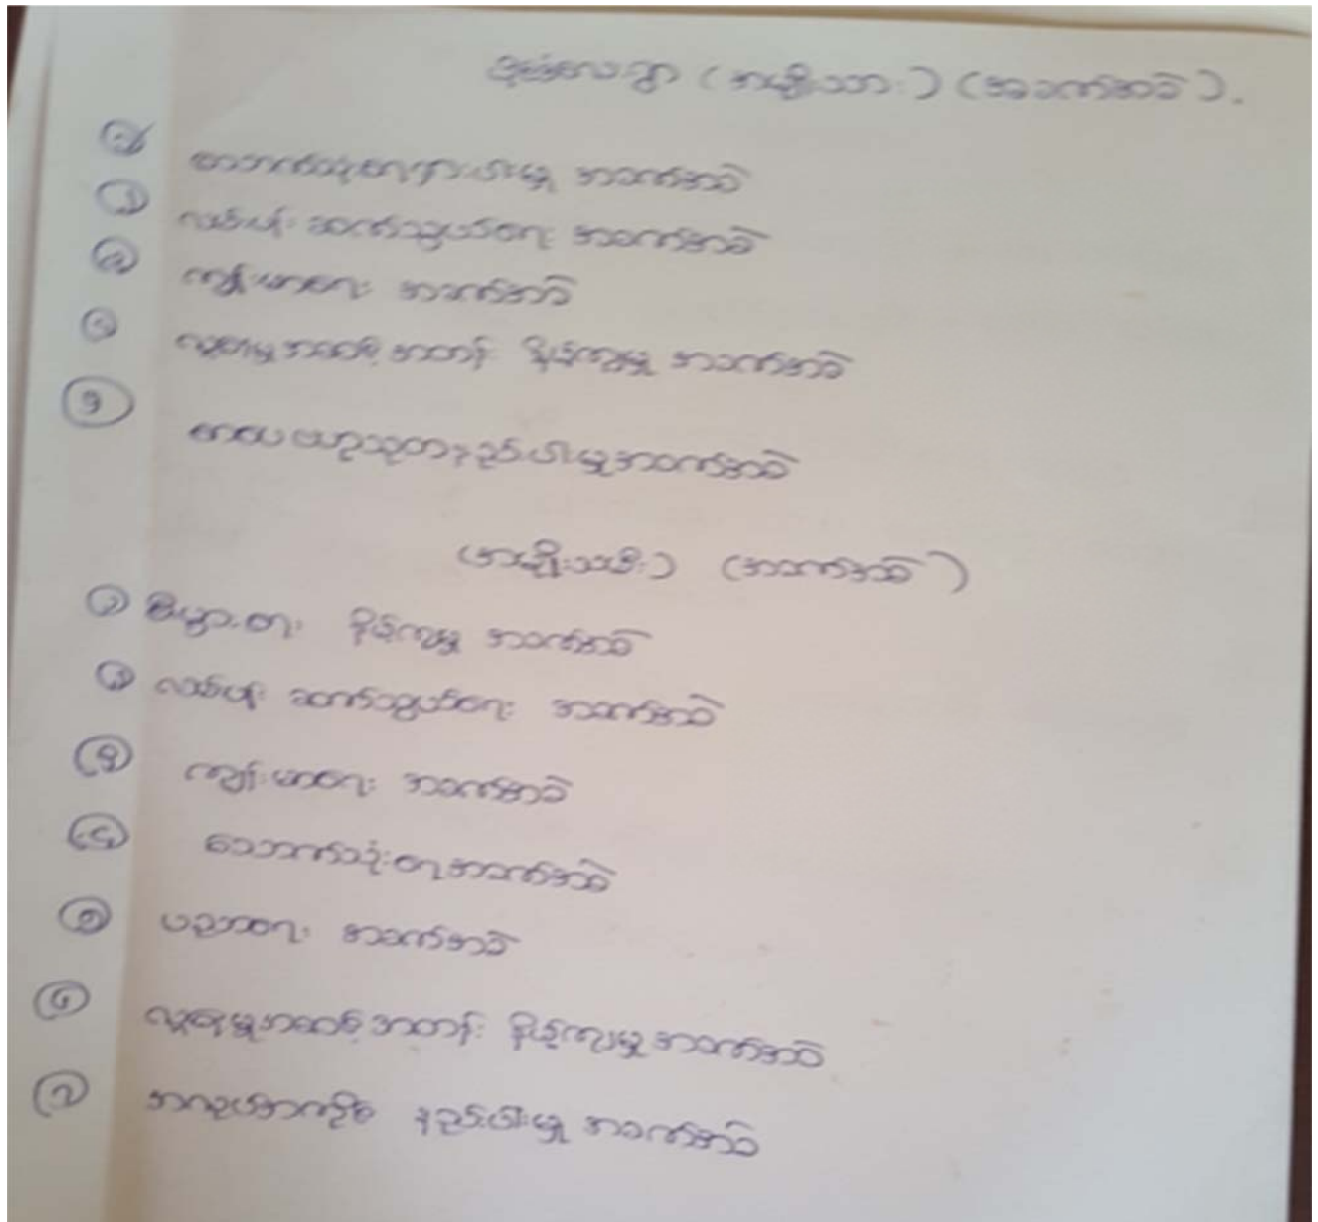 (အမျိုးသား) (အခက်အခဲ).
၁ အခက်အခဲ
၂ လမ်းပန်း ဆက်သွယ်ရေး အခက်အခဲ
၃ ကျန်းမာရေး အခက်အခဲ
၄ လူနေမှုအဆင့်အတန်း နိမ့်ကျမှု အခက်အခဲ
၅ ဗဟုသုတနည်းပါးမှုအခက်အခဲ
(အမျိုးသမီး) (အခက်အခဲ)
၁ စီးပွားရေး နိမ့်ကျမှု အခက်အခဲ
၂ လမ်းပန်း ဆက်သွယ်ရေး အခက်အခဲ
၃ ကျန်းမာရေး အခက်အခဲ
၄ သောက်သုံးရေအခက်အခဲ
၅ ပညာရေး အခက်အခဲ
၆ လူနေမှုအဆင့်အတန်း နိမ့်ကျမှု အခက်အခဲ
၇ အလုပ်အကိုင် နည်းပါးမှု အခက်အခဲ